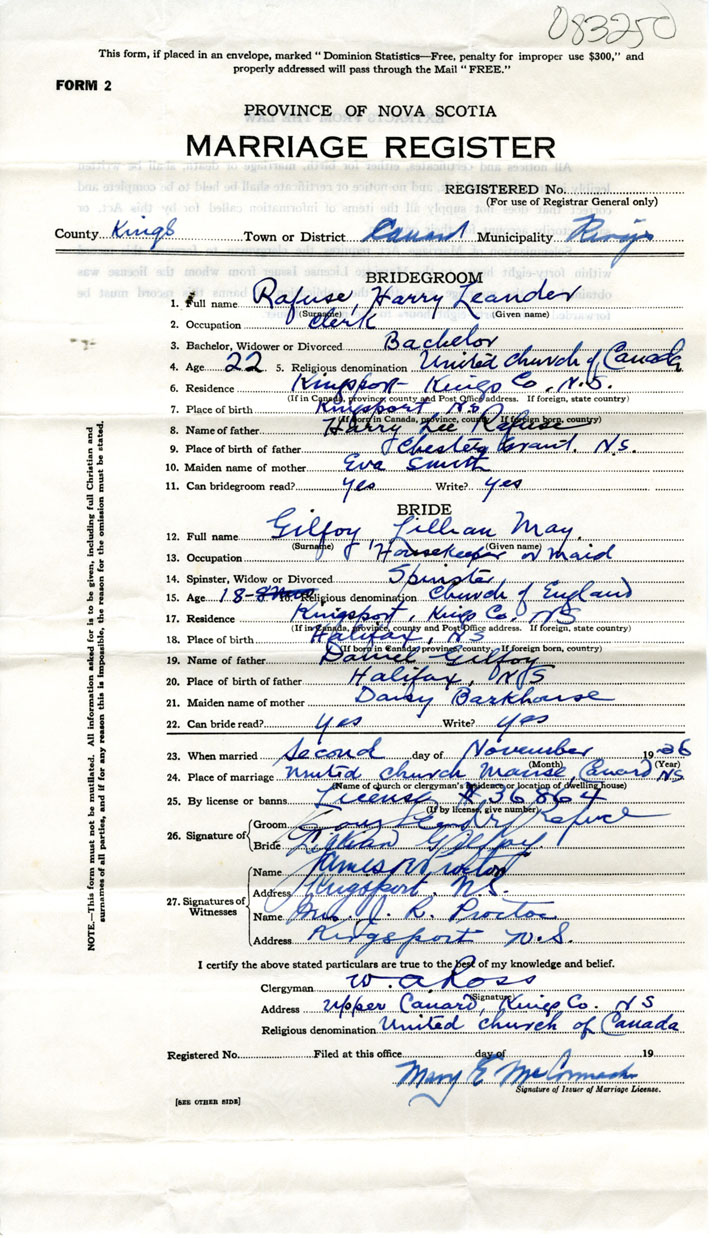 083250
This form, if placed in an envelope, marked "Dominion Statistics—Free, penalty for improper use $300," and
properly addressed will pass through the Mail "FREE."
FORM 2
PROVINCE OF NOVA SCOTIA
MARRIAGE REGISTER
REGISTERED No.
(For use of Registrar General only)
County Kings Town or District Canard Municipality Kings
BRIDEGROOM
1. Full name Rafuse, Harry Leander
(Surname) (Given name)
2. Occupation Clerk
3. Bachelor, Widower or Divorced Bachelor
4. Age 22 5. Religious denomination United Church of Canada
6. Residence Kingsport Kings Co. N.S.
(If in Canada, province, county and Post Office address. If foreign, state country)
7. Place of birth Kingsport N.S.
(If born in Canada, province, county. If foreign born, country)
8. Name of father Harry Lee Rafuse
9. Place of birth of father Chester Grant, N.S.
10. Maiden name of mother Eva Smith
11. Can bridegroom read? yes Write? yes
BRIDE
12. Full name Gilfoy, Lillian May
(Surname) (Given name)
13. Occupation Housekeeper or maid
14. Spinster, Widow or Divorced Spinster
15. Age 18 16. Religious denomination Church of England
17. Residence Kingsport, Kings Co. NS
(If in Canada, province, county and Post Office address. If foreign, state country)
18. Place of birth Halifax, NS
(If born in Canada, province, county. If foreign born, country)
19. Name of father Daniel Gilfoy
20. Place of birth of father Halifax, NS
21. Maiden name of mother Daisy Barkhouse
22. Can bride read? yes Write? yes
23. When married Second day of November 1936
(Month) (Year)
24. Place of marriage United Church Manse, Canard NS
(Name of church or clergyman's residence or location of dwelling house)
25. By license or banns License # 36864
(If by license, give number)
26. Signature of Groom Harry Leander Rafuse
Bride Lillian Gilfoy
27. Signatures of Witnesses
Name James Proctor
Address Kingsport, N.S.
Name Mrs. J. R. Proctor
Address Kingsport N.S.
I certify the above stated particulars are true to the best of my knowledge and belief.
Clergyman W. A. Ross
(Signature)
Address Upper Canard, Kings Co. NS
Religious denomination United Church of Canada
Registered No. Filed at this office day of 19
Mary E McCormack
Signature of Issuer of Marriage License.
[SEE OTHER SIDE]
NOTE.—This form must not be mutilated. All information asked for is to be given, including full Christian and
surnames of all parties, and if for any reason this is impossible, the reason for the omission must be stated.